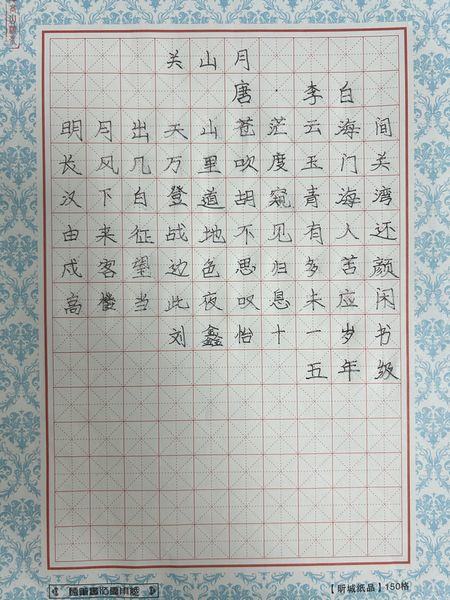 关山月
唐·李白
明月出天山苍茫云海间
长风几万里吹度玉门关
汉下白登道胡窥青海湾
由来征战地不见有人还
戍客望边色思归多苦颜
高楼当此夜叹息未应闲
刘鑫怡十一岁书
五年级
【昕城纸品】150格